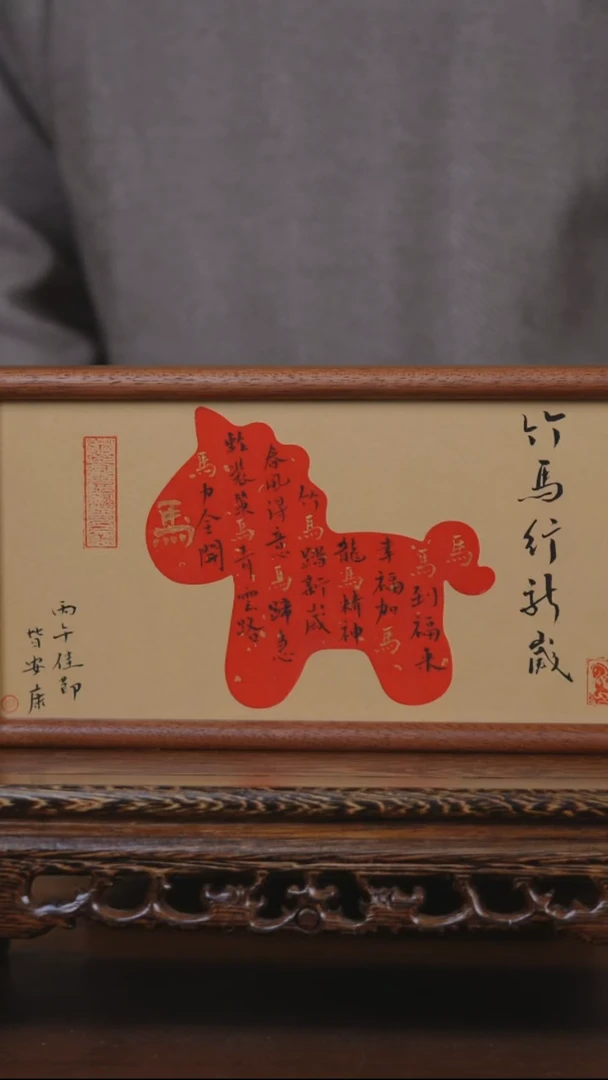 竹馬行新歲
馬
馬到福来
幸福加馬
龍馬精神
竹馬踏新歲
春風得意馬蹄急
整裝策馬青雲路
馬力全開
馬
丙午佳節
皆安康